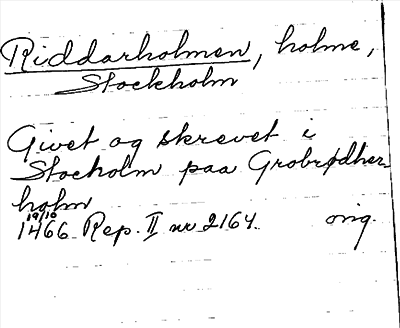 Riddarholmen, holme,
Stockholm
Givet og skrevet i
Stocholm paa Grobrødher
holm
19/10
1466 Rep. II nr 2164. orig.